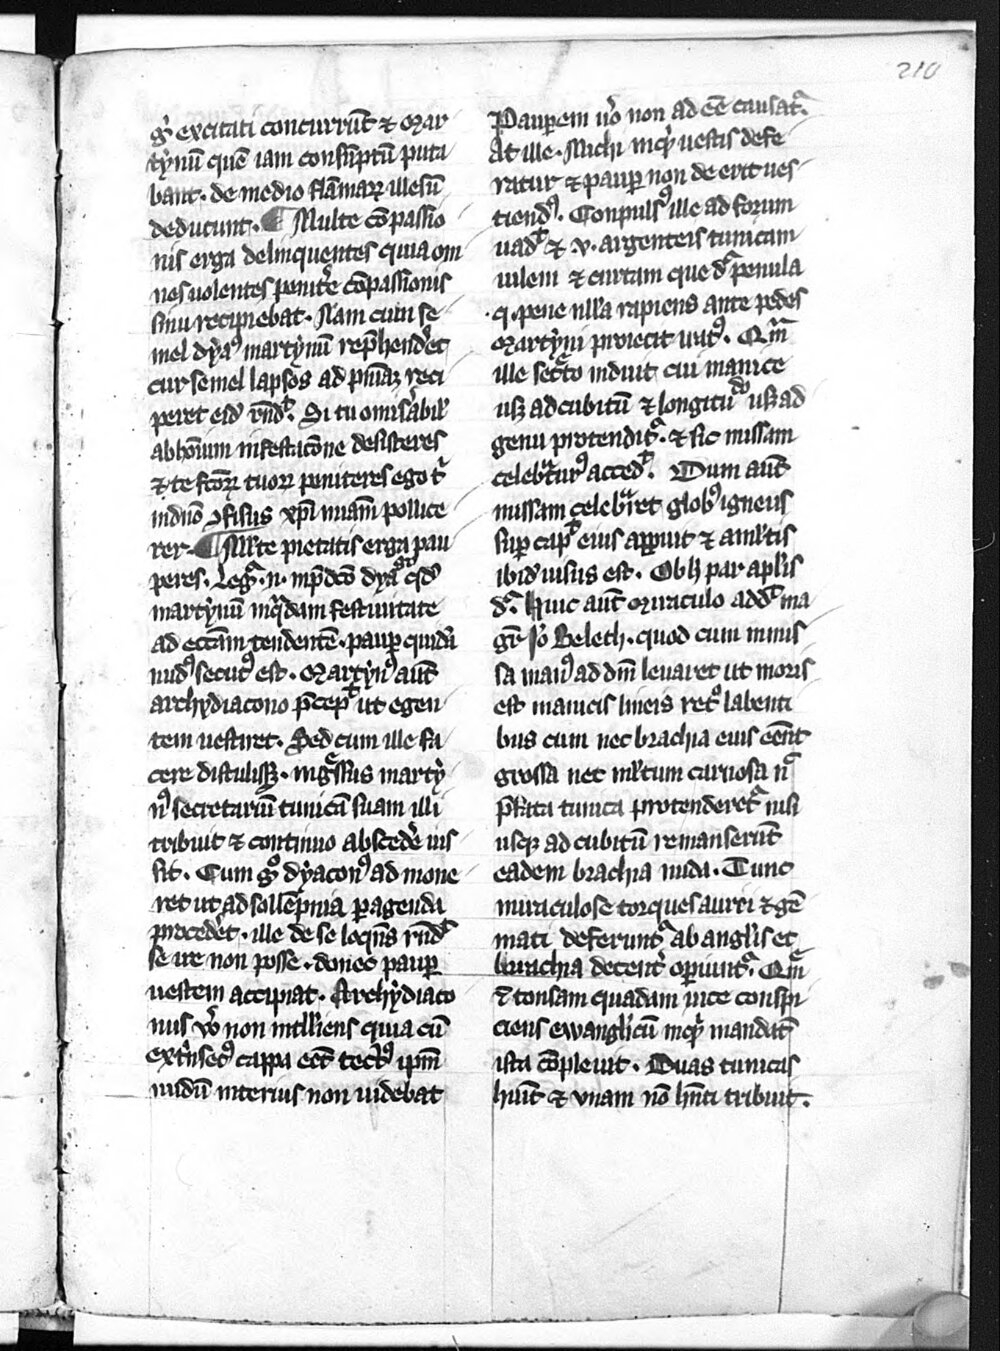 210
g̊ excitati concurrūt ⁊ Mar
tynū quē iam consūptū puta
bant. de medio flāmaꝝ illesū
deducunt. ¶ Multe cōpassio
nis erga delinquentes quia om
nes uolentes penitēre cōpassionis
sinu recipiebat. Nam cum se
mel dyaꝰ martynū rep̄henderet
cur semel lapsos ad pn̄iaꝫ reci
peret eid̄ rn̄dꝫ. Si tu o miserabil̓
ab hoīum infestatiōne desisteres
⁊ te factoꝝ tuoꝝ peniteres ego t̓
in dn̄o ꝯfisus xp̄i miam̄ pollice
rer. ¶ Ml̓te pietatis erga pau
peres. Legr̓. n. in p̄dc̄o dya
martynū in q̓dam festiuitate
ad ecc̄am tendentē. paup̱ quidā
nudꝰ secutꝰ est. Martynꝰ aūt
archydiacono p̄cep̄ ut egen
tem uestiret. Sed cum ille fa
cere distulisꝫ. ingressus marty
nꝰ secretariū tunicā suam illi
tribuit ⁊ continuo abscedere ius
sit. Cum g̊ dyaconꝰ ad mone
ret ut ad sollēpnia ꝑagenda
procederet. ille de se loquēs rn̄dꝫ
se ire non posse. donec paup̱
uestem accipiat. Archydiaco
nus v̊o non intelliēns quia cū
extrinsecꝰ cappa eēt tectꝰ ipm̄
nudū interius non uidebat
Pauꝑem ůo non ad eē̄ causat̓.
At ille. Michi inq̓t uestis defe
ratur ⁊ paup̱ non de erit ues
tiendꝰ. Conpulsꝰ ille ad forum
uadꝫ ⁊ .v. argenteis tunicam
uilem ⁊ curtam que dr̄ penula
.q. pene nulla rapiens ante pedes
Martyni proiecit iratꝰ. Qm̄
ille sec̓to induit cui manice
usꝫ ad cubitū ⁊ longitudo usꝫ ad
genu protendit̓. ⁊ sic missam
celebraturꝰ accedꝫ. Dum aūt
missam celebraret globꝰ igneus
suꝑ cap̄ eius apparuit ⁊ a ml̓tis
ibid̄ uisus est. Ob h̓ par apl̓is
dr̄. Huic aūt miraculo addꝫ ma
gr̄ Jo̓ Beleth. quod cum in mis
sa manꝰ ad dm̄ leuaret ut moris
est manicis lineis ret̊ labenti
bus cum nec brachia eius eēnt
grossa nec ml̓tum carnosa n̄
p̄dicta tunica protenderet̓ nisi
usꝙ ad cubitū remanserūt
eadem brachia nuda. Tunc
miraculose torques aurei ⁊ gē
mati deferunt̓ ab angl̓is et
brachia decent̓ operiunt̓. Qm̄
⁊ tonsam quadam uice conspi
ciens ewanglicū inq̓t mandat̄
ista cōpleuit. Duas tunicas
huit ⁊ vnam nō hn̄ti tribuit.